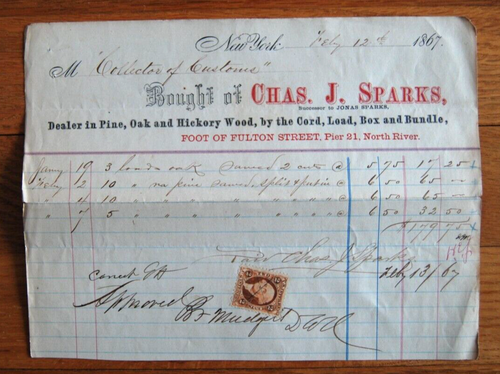 New York Feby 12th 1867.
M "Collector of Customs"
Bought of CHAS. J. SPARKS,
Successor to JONAS SPARKS,
Dealer in Pine, Oak and Hickory Wood, by the Cord, Load, Box and Bundle,
FOOT OF FULTON STREET, Pier 21, North River.
Jany 19 3 loads oak sawed 2 cuts @ 5 75 17 25
Feby 2 10 " va pine sawed, split & put in @ 6 50 65 —
" 4 10 " " " " " " @ 6 50 65 —
" 7 5 " " " " " " @ 6 50 32.50
$179.75
Chas J Sparks
Feby 13/67
Correct
Approved